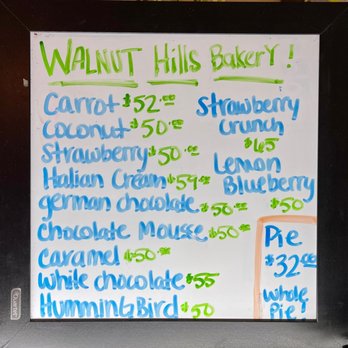 WALNUT Hills BakerY!
Carrot $52.00
Coconut $50.00
Strawberry $50.00
Italian Cream $54.00
german chocolate $50.00
Chocolate Mousse $50.00
Caramel $50.00
White chocolate $55
HummingBird $50
Strawberry
Crunch
$65
Lemon
Blueberry
$50
Pie
$32.00
Whole
Pie!
Quartet